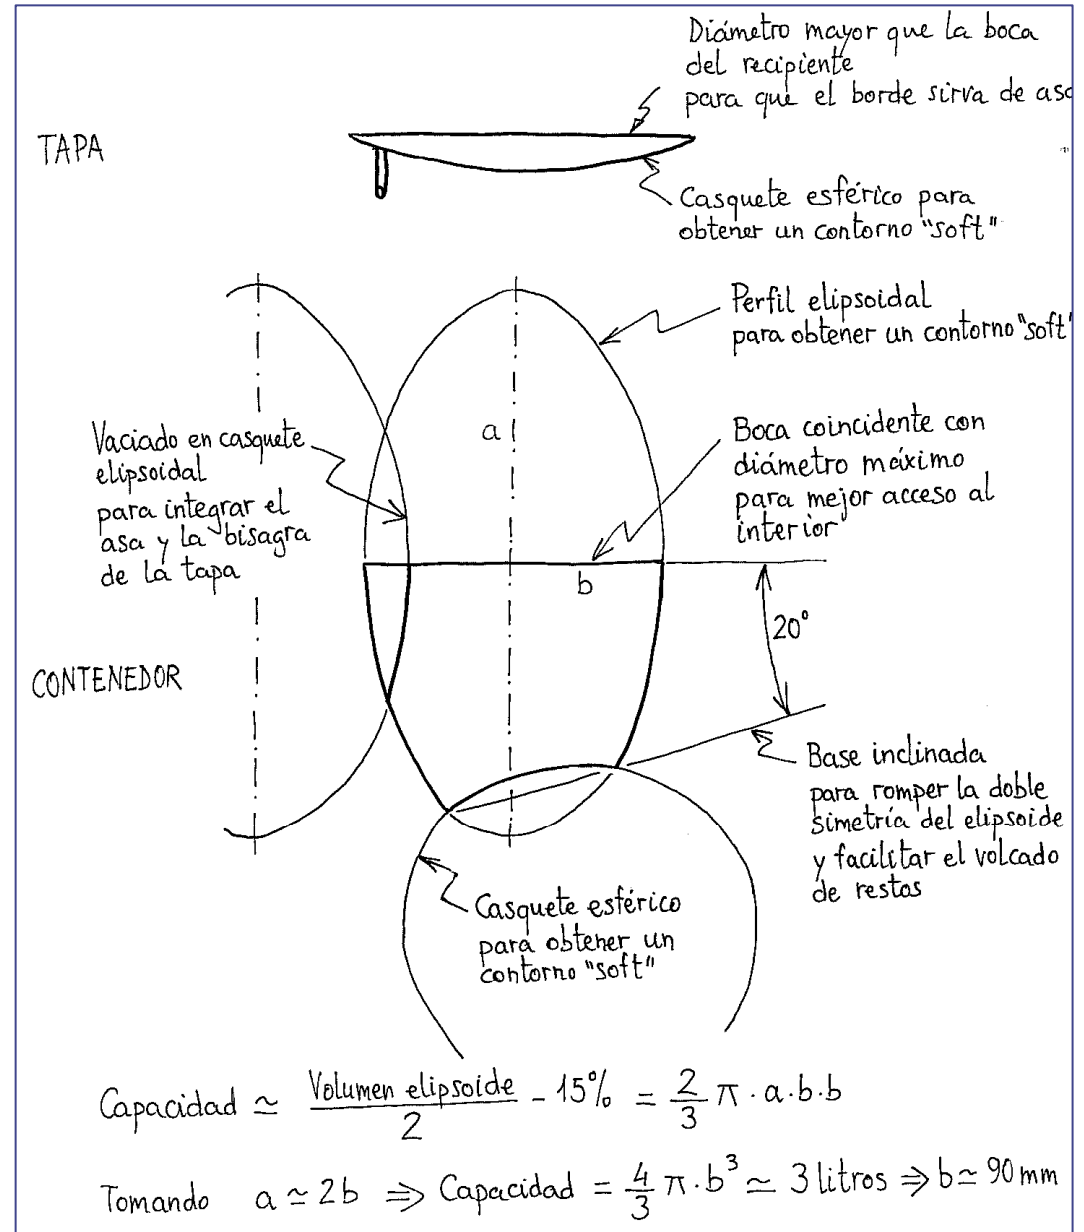 Diámetro mayor que la boca
del recipiente
para que el borde sirva de asa
TAPA
Casquete esférico para
obtener un contorno "soft"
Perfil elipsoidal
para obtener un contorno "soft"
a
Vaciado en casquete
elipsoidal
para integrar el
asa y la bisagra
de la tapa
Boca coincidente con
diámetro máximo
para mejor acceso al
interior
b
20°
CONTENEDOR
Base inclinada
para romper la doble
simetría del elipsoide
y facilitar el volcado
de restos
Casquete esférico
para obtener un
contorno "soft"
Capacidad ≃ Volumen elipsoide / 2 - 15% = 2/3 π · a.b.b
Tomando a ≃ 2b ⇒ Capacidad = 4/3 π. b³ ≃ 3 litros ⇒ b ≃ 90 mm